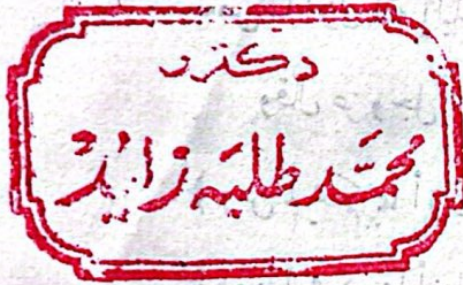 دكتور
محمد طلبه زايد